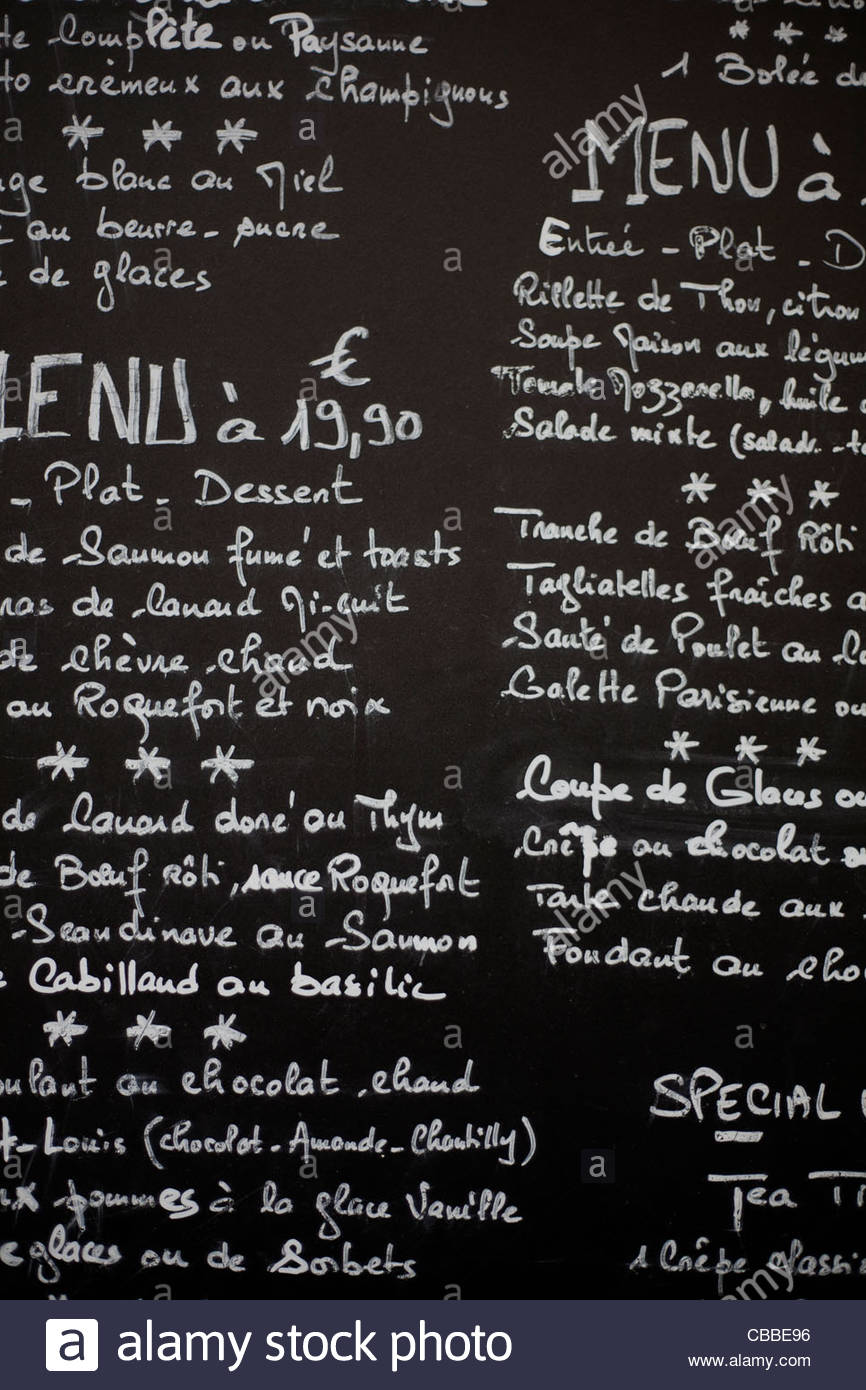 te Complète ou Paysanne
to crèmeux aux champignons
* * *
ge blanc au Miel
au beurre - sucre
e de glaces
MENU à 19,90 €
- Plat - Dessent
de Saumon fumé et toasts
ras de Canard Mi-cuit
de chèvre chaud
au Roquefort et noix
* * *
de Canard doré au Thym
de Bœuf rôti, sauce Roquefort
Scandinave au Saumon
e Cabillaud au basilic
* * *
oulant au chocolat chaud
t-Louis (chocolat - Amande - Chantilly)
ux pommes à la glace Vanille
e glaces ou de Sorbets
* * *
1 Bolée de
MENU à
Entrée - Plat - D
Rillette de Thon, citron
Soupe Maison aux légum
Tomate Mozzarella, huile
Salade mixte (salad. - to
* * *
Tranche de Bœuf Rôti
Tagliatelles fraîches a
Sauté de Poulet au
Galette Parisienne ou
* * *
Coupe de Glaces ou
Crêpe au chocolat
Tarte chaude aux
Fondant au cho
SPECIAL
Tea T
1 Crêpe classi
a alamy stock photo
CBBE96
www.alamy.com